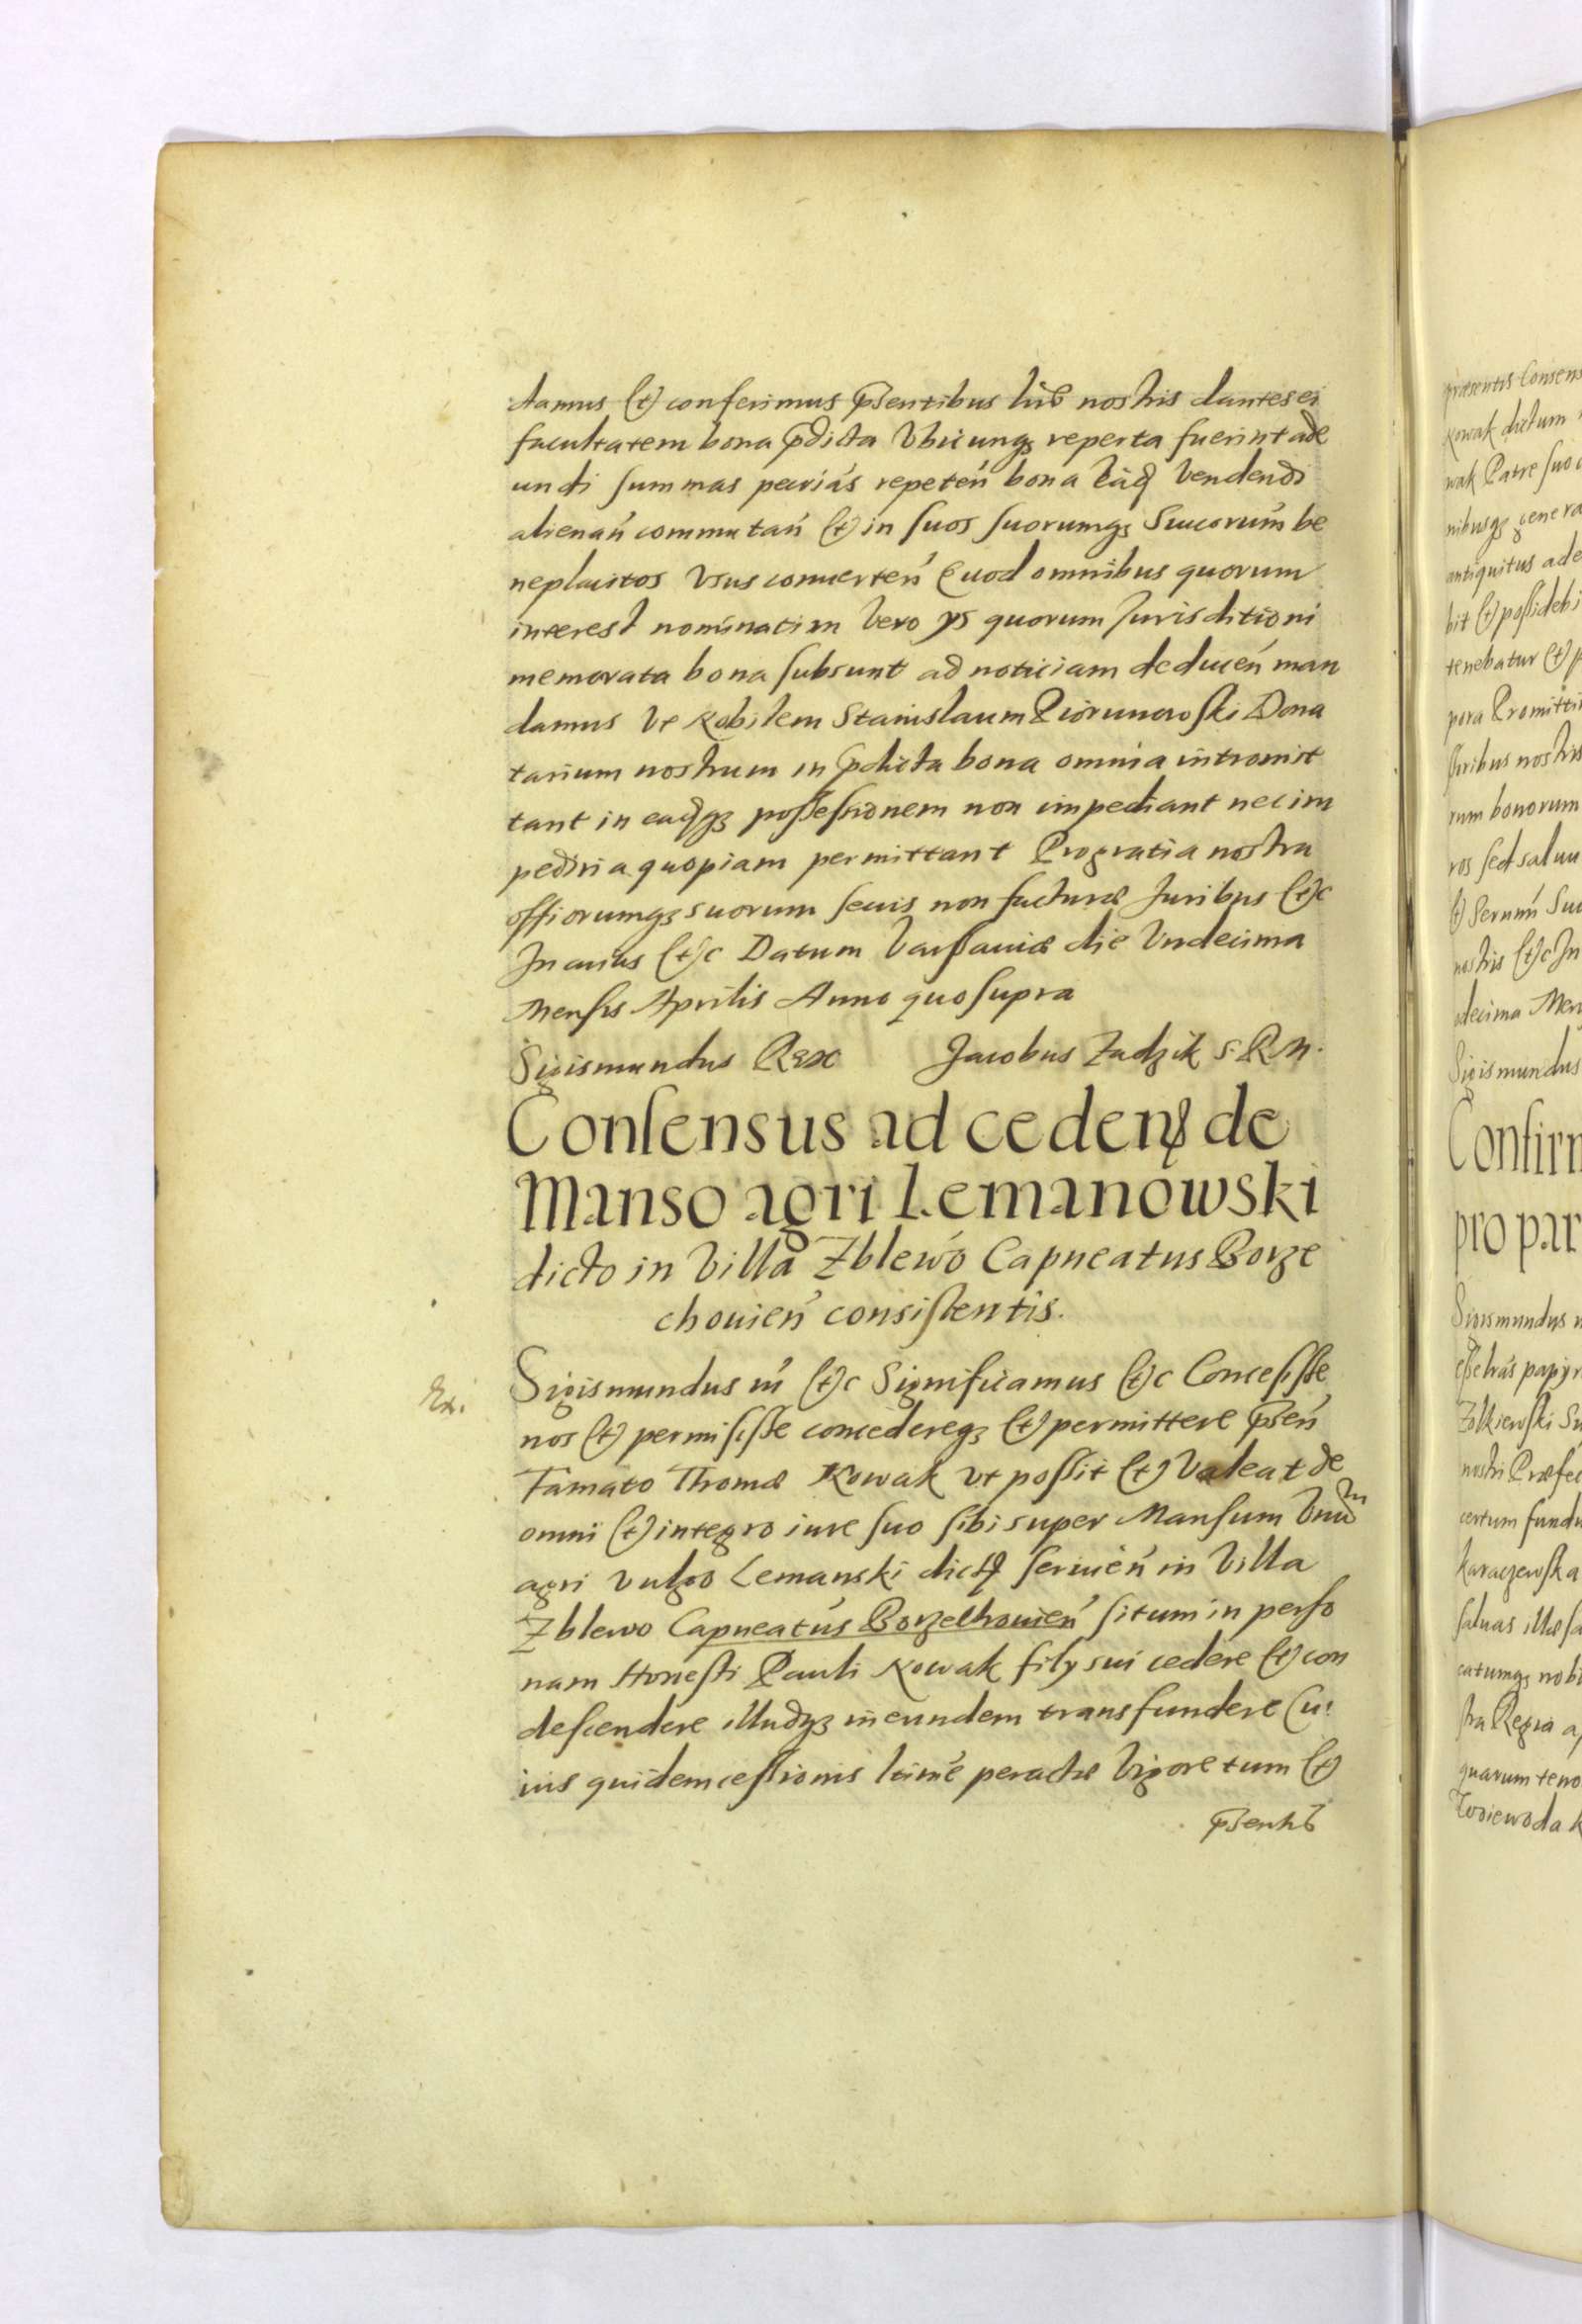 damus (et) conferimus p̃sentibus lris nostris dantes ei
facultatem bona p̃dicta Vbicunq3 reperta fuerint ade
undi summas pecriás repeteń bona eãd Vendendi
alienań commutań (et) in suos suorumq3 Succorúm be
neplacitos Vsus conuerteń Quod omnibus quorum
interest nominatim Vero ys quorum Jurisditioni
memorata bona subsunt ad noticiam deduceń man
damus Vt Nobilem Stanislaum Piorunowski Dona
tarium nostrum in p̃dicta bona omnia intromit
tant in eadq3 possessionem non impediant nec im
pediri a quopiam permittant Pro gratia nostra
offiorumq3 suorum secus non facturæ Juribus (et)c
In cuius (et)c Datum Varsauiæ die Vndecima
Mensis Aprilis Anno quo supra
Sigismundus Rex Jacobus Zadzik S. R. M.
Consensus ad cedend de
Manso agri Lemanowski
dicto in Villa Zblewo Capneatus Borze
chouień consistentis.
Ex.
Sigismundus iii (et)c Significamus (et)c Concessisse
nos (et) permisisse concedereq3 (et) permittere p̃seń
Famato Thomæ Kowak vt possit (et) Valeat de
omni (et) integro iure suo sibi super Mansum Vnum
agri vulgo Lemanski dict seruień in Villa
Zblewo Capneatús Borzechouień situm in perso
nam Honesti Pauli Kowak fily sui cedere (et) con
descendere illudq3 in eundem transfundere Cu:
ius quidem cessionis ltime peractæ Vigore tum (et)
p̃sentib
præsentis Consens
Kowak dictum
wak Patre suo
nibusq3 genera
antiquitus ade
bit (et) possidebi
tenebatur (et) p
pora Promitti
nostris
rum bonorum
ros sed saluu
(et) Serumń Suc
nostris (et)c In
decima Men
Sigismundus
Confirm
pro par
Sigismundus
esse lrás papyr
Zolkiewski Su
nostri Præfec
certum fundu
Karaczewska
saluas illæsa
catumq3 nobi
stra Regia a
quarum teno
Woiewoda K